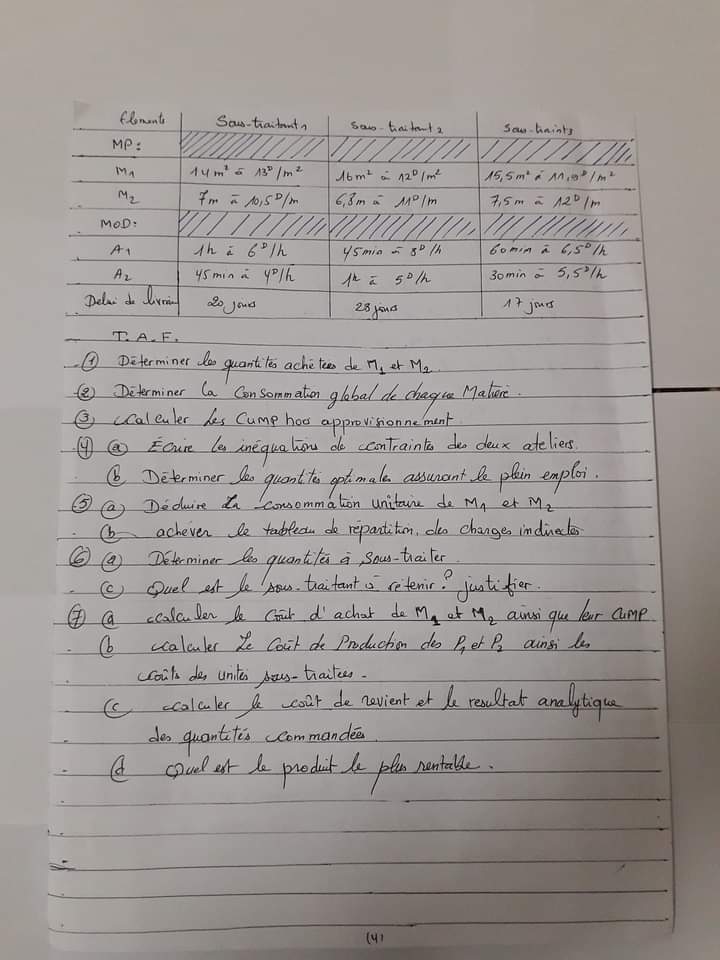 Elements Sous-traitant 1 Sous-traitant 2 Sous-traint 3
MP:
M1 14m² à 13D/m² 16m² à 12D/m² 15,5m² à 11,9D/m²
M2 7m à 10,5D/m 6,8m à 11D/m 7,5m à 12D/m
MOD:
A1 1h à 6D/h 45min à 8D/h 60min à 6,5D/h
A2 45min à 4D/h 1h à 5D/h 30min à 5,5D/h
Delai de livraison 20 jours 28 jours 17 jours
T.A.F.
① Déterminer les quantités achetées de M1 et M2.
② Déterminer la Consommation global de chaque Matière.
③ Calculer les CUMP hors approvisionnement.
④ ⓐ Écrire les inéquations de contraintes des deux ateliers.
ⓑ Déterminer les quantités optimales assurant le plein emploi.
⑤ ⓐ Déduire la consommation unitaire de M1 et M2
ⓑ achever le tableau de répartition des charges indirectes
⑥ ⓐ Déterminer les quantités à sous-traiter.
ⓒ Quel est le sous-traitant à retenir? justifier.
⑦ ⓐ calculer le Coût d'achat de M1 et M2 ainsi que leur CUMP
ⓑ calculer Le Coût de Production des P1 et P2 ainsi les
coûts des unités sous-traitées.
ⓒ calculer le coût de revient et le resultat analytique
des quantités commandées
ⓓ Quel est le produit le plus rentable.
(4)